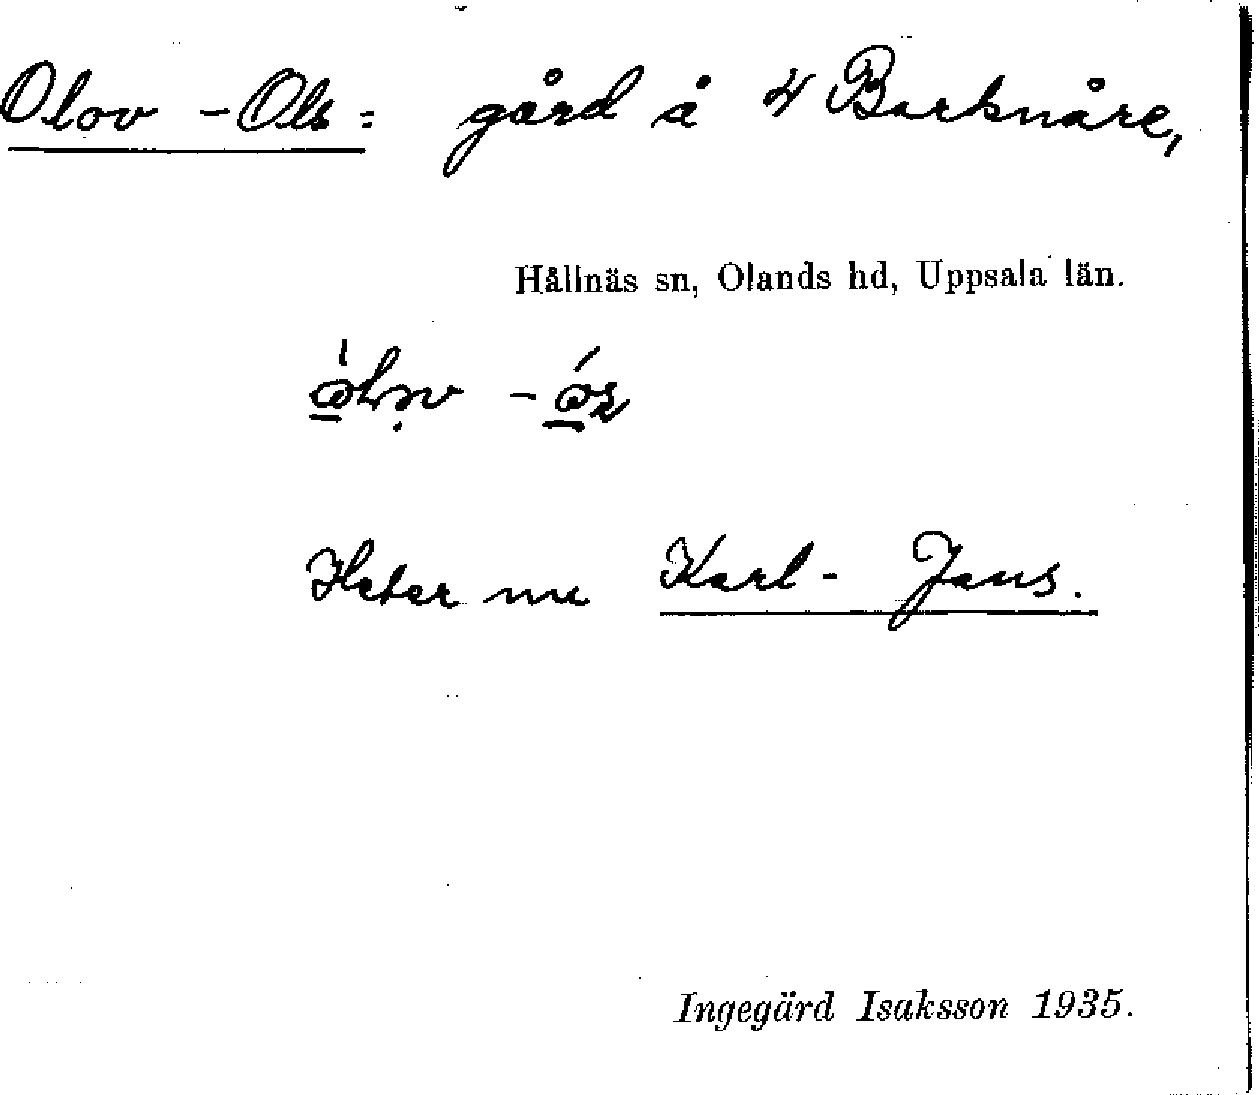 Olov - Ols= gård å 4 Barknåre,
Hållnäs sn, Olands hd, Uppsala län.
Heter nu Karl - Jans.
Ingegärd Isaksson 1935.